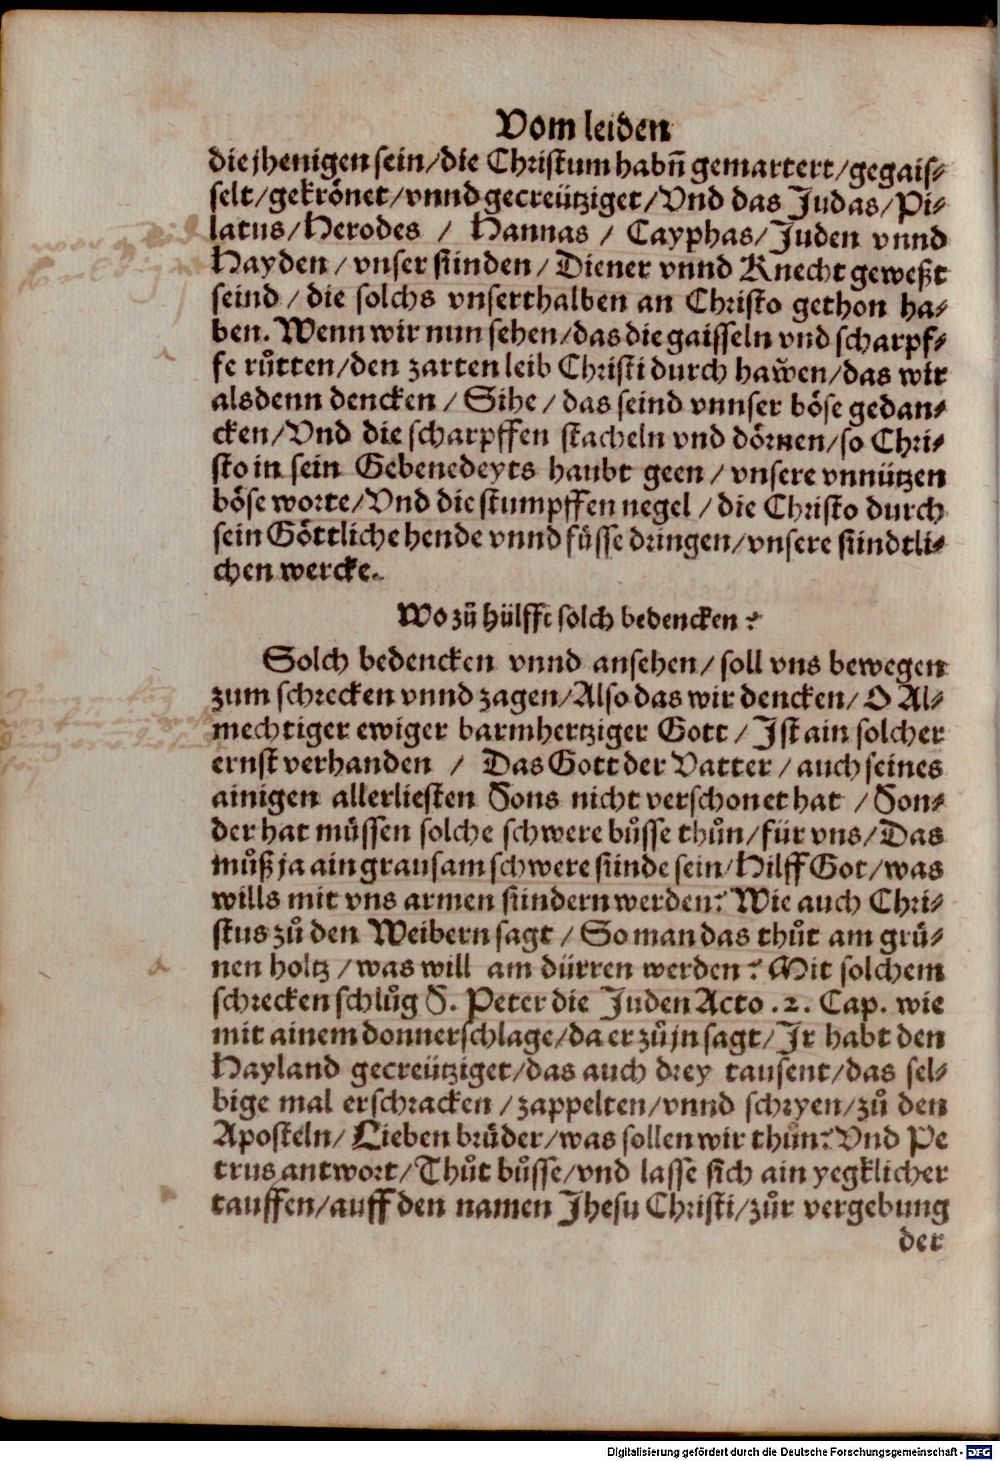 Vom leiden
die jhenigen sein/die Christum habñ gemartert/gegais⸗
selt/gekrönet/vnnd gecreütziget/Vnd das Judas/Pi⸗
latus/Herodes / Hannas / Cayphas/Juden vnnd
Hayden/vnser sünden/Diener vnnd Knecht geweßt
seind/die solchs vnserthalben an Christo gethon ha⸗
ben. Wenn wir nun sehen/das die gaisseln vnd scharpf⸗
fe růtten/den zarten leib Christi durch haẘen/das wir
alsdenn dencken/Sihe/das seind vnnser böse gedan⸗
cken/Vnd die scharpffen stacheln vnd dörnen/so Chri⸗
sto in sein Gebenedeyts haubt geen/vnsere vnnützen
böse worte/Vnd die stumpffen negel/die Christo durch
sein Göttliche hende vnnd füsse dringen/vnsere sündtli⸗
chen wercke.
Wo zů hülfft solch bedencken?
Solch bedencken vnnd ansehen/soll vns bewegen
zum schrecken vnnd zagen/Also das wir dencken/O Al⸗
mechtiger ewiger barmhertziger Gott/Ist ain solcher
ernst verhanden / Das Gott der Vatter/auch seines
ainigen allerliesten Sons nicht verschonet hat /Son⸗
der hat müssen solche schwere bůsse thůn/für vns/Das
můß ja ain grausam schwere sünde sein/Hilff Got/was
wills mit vns armen sündern werden? Wie auch Chri⸗
stus zů den Weibern sagt/So man das thůt am grü⸗
nen holtz/was will am dürren werden? Mit solchem
schrecken schlůg S. Peter die Juden Acto .2. Cap. wie
mit ainem donnerschlage/da er zů jn sagt/Ir habt den
Hayland gecreütziget/das auch drey tausent/das sel⸗
bige mal erschracken/zappelten/vnnd schryen/zů den
Aposteln/Lieben brüder/was sollen wir thůn? Vnd Pe
trus antwort/Thůt bůsse/vnd lasse sich ain yegklicher
tauffen/auff den namen Jhesu Christi/zůr vergebung
der
Digitalisierung gefördert durch die Deutsche Forschungsgemeinschaft - DFG